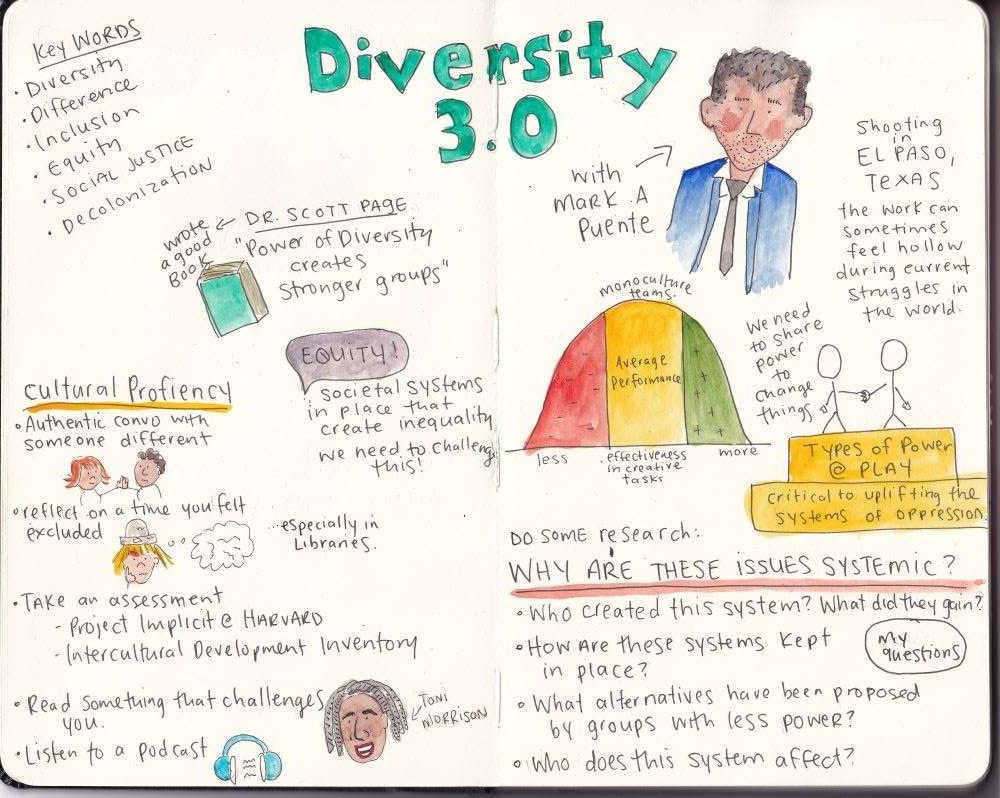 Diversity
3.0
Key WORDS
· Diversity
· Difference
· Inclusion
· Equity
· SOCIAL JUSTICE
· Decolonization
wrote
a good
Book
DR. SCOTT PAGE
"Power of Diversity
creates
stronger groups"
EQUITY!
societal systems
in place that
create inequality
we need to challenge
this!
Cultural Profiency
• Authentic convo with
someone different
• reflect on a time you felt
excluded
...especially in
Libraries.
• TAKE an assessment
- Project Implicit @ HARVARD
- Intercultural Development Inventory
• Read something that challenges
you.
Toni
MORRISON
• Listen to a podcast
with
MARK A
Puente
Shooting
in
EL PASO,
TEXAS
the work can
sometimes
feel hollow
during current
struggles in
the world.
monoculture
teams.
Average
Performance
less
effectiveness
in creative
tasks
more
We need
to share
power
to
change
things
Types of Power
@ PLAY
critical to uplifting the
systems of oppression.
DO SOME research:
WHY ARE THESE ISSUES SYSTEMIC?
• Who created this system? What did they gain?
• How Are these systems kept
in place?
my
questions
• What alternatives have been proposed
by groups with less power?
• Who does this system affect?